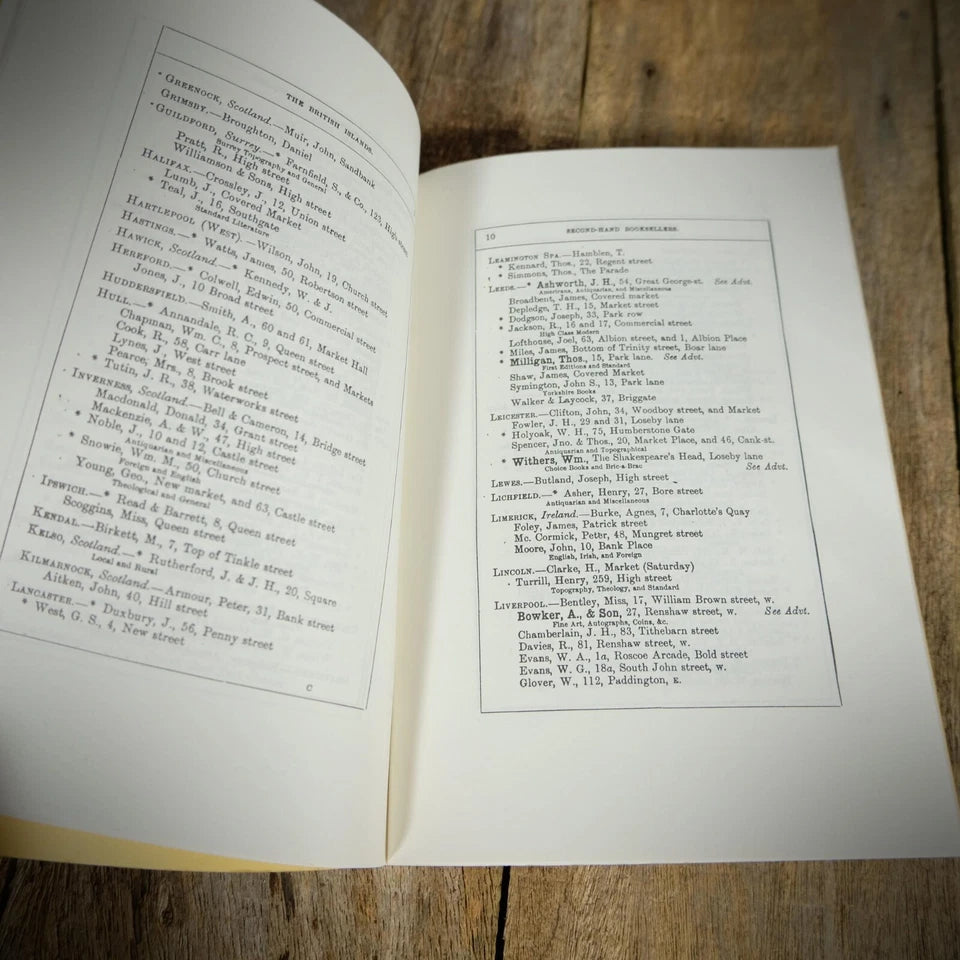 THE BRITISH ISLANDS.
GREENOCK, Scotland.—Muir, John, Sandbank
GRIMSBY.—Broughton, Daniel
GUILDFORD, Surrey.—* Farnfield, S., & Co., 123, High street
Surrey Topography and General
Pratt, R., High street
Williamson & Sons, High street
HALIFAX.—Crossley, J., 12, Union street
Lumb, J., Covered Market
* Teal, J., 16, Southgate
Standard Literature
HARTLEPOOL (WEST).—Wilson, John, 19, Church street
HASTINGS.—* Watts, James, 50, Robertson street
HAWICK, Scotland.—* Kennedy, W. & J.
HEREFORD.—* Colwell, Edwin, 50, Commercial street
Jones, J., 10 Broad street
HUDDERSFIELD.—Smith, A., 60 and 61, Market Hall
HULL.—* Annandale, R. C., 9, Queen street
Chapman, Wm. C., 8, Prospect street, and Markets
Cook, R., 58, Carr lane
Lynes, J., West street
Pearce, Mrs., 8, Brook street
* Tutin, J. R., 38, Waterworks street
INVERNESS, Scotland.—Bell & Cameron, 14, Bridge street
Macdonald, Donald, 34, Grant street
Mackenzie, A. & W., 47, High street
* Noble, J., 10 and 12, Castle street
Antiquarian and Miscellaneous
* Snowie, Wm. M., 50, Church street
Foreign and English
Young, Geo., New market, and 63, Castle street
Theological and General
IPSWICH.—* Read & Barrett, 8, Queen street
Scoggins, Miss, Queen street
KENDAL.—Birkett, M., 7, Top of Tinkle street
KELSO, Scotland.—* Rutherford, J. & J. H., 20, Square
Local and Rural
KILMARNOCK, Scotland.—Armour, Peter, 31, Bank street
Aitken, John, 40, Hill street
LANCASTER.—* Duxbury, J., 56, Penny street
* West, G. S., 4, New street
C
10 SECOND-HAND BOOKSELLERS.
LEAMINGTON SPA.—Hamblen, T.
* Kennard, Thos., 22, Regent street
* Simmons, Thos., The Parade
LEEDS.—* Ashworth, J. H., 54, Great George-st. See Advt.
Americana, Antiquarian, and Miscellaneous
Broadbent, James, Covered market
Depledge, T. H., 15, Market street
* Dodgson, Joseph, 33, Park row
* Jackson, R., 16 and 17, Commercial street
High Class Modern
Lofthouse, Joel, 63, Albion street, and 1, Albion Place
* Miles, James, Bottom of Trinity street, Boar lane
* Milligan, Thos., 15, Park lane. See Advt.
First Editions and Standard
Shaw, James, Covered Market
Symington, John S., 13, Park lane
Yorkshire Books
Walker & Laycock, 37, Briggate
LEICESTER.—Clifton, John, 34, Woodboy street, and Market
Fowler, J. H., 29 and 31, Loseby lane
* Holyoak, W. H., 75, Humberstone Gate
Spencer, Jno. & Thos., 20, Market Place, and 46, Cank-st.
Antiquarian and Topographical
* Withers, Wm., The Shakespeare's Head, Loseby lane
Choice Books and Bric-a-Brac See Advt.
LEWES.—Butland, Joseph, High street
LICHFIELD.—* Asher, Henry, 27, Bore street
Antiquarian and Miscellaneous
LIMERICK, Ireland.—Burke, Agnes, 7, Charlotte's Quay
Foley, James, Patrick street
Mc. Cormick, Peter, 48, Mungret street
Moore, John, 10, Bank Place
English, Irish, and Foreign
LINCOLN.—Clarke, H., Market (Saturday)
Turrill, Henry, 259, High street
Topography, Theology, and Standard
LIVERPOOL.—Bentley, Miss, 17, William Brown street, W.
Bowker, A., & Son, 27, Renshaw street, W. See Advt.
Fine Art, Autographs, Coins, &c.
Chamberlain, J. H., 83, Tithebarn street
Davies, R., 81, Renshaw street, W.
Evans, W. A., 1a, Roscoe Arcade, Bold street
Evans, W. G., 18a, South John street, W.
Glover, W., 112, Paddington, E.